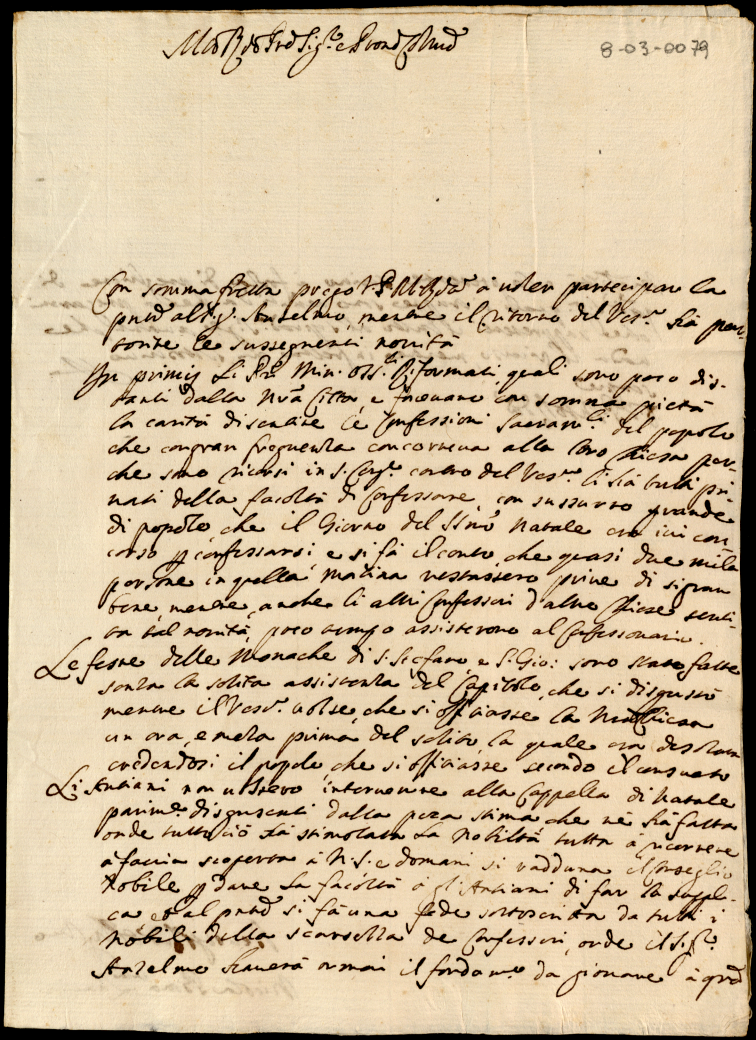 8-03-0079
Con somma fretta prego V. P. M. Rda à voler partecipar la
pnte al Sig. Anselmo, mentre il ritorno del Vesc.o hà par-
torite le sussegnenti novità
In primis Li Pri Min. oss.ti Riformati quali sono poco dis-
tanti dalla nra Città, e facevano con somma pietà
la carità di sentire le Confessioni Sacram.li del popolo
che con gran frequenza concorreva alla loro Chiesa per-
che sono ricorsi in S. Cong.e contro del Vesc.o li hà tutti pri-
vati della facoltà di Confessare, con sussurro grande
di popolo, che il Giorno del SSmo Natale era ivi con-
corso p confessarsi, e si fà il conto, che quasi due mila
persone in quella matina restassero prive di si gran
bene, mentre anche li altri Confessori d'altre Chiese senti-
ta tal novità, poco tempo assisterono al Confessionario.
Le feste delle Monache di S. Stefano, e S. Gio: sono state fatte
senza la solita assistenza del Capitolo, che si disgustò
mentre il Vesc.o volse, che si officiasse la
un ora, e meza prima del solito, la quale era desolata
credendosi il popolo che si officiasse secondo il consueto
Li Antiani non volsero intervenire alla Cappella di Natale
parim.te disgustati dalla poca stima che ne hà fatta
onde tutto ciò hà stimolata la Nobiltà tutta à ricorrere
à faccia scoperta à N. S. e domani si radduna il Conseglio
Nobile p dare la facoltà à gl'Antiani di far la suppli-
ca et al pnte si fà una fede sottoscritta da tutti i
Nobili della scarsezza de Confessori, onde il Sig.r
Anselmo haverà ormai il fondam.to da giovare à